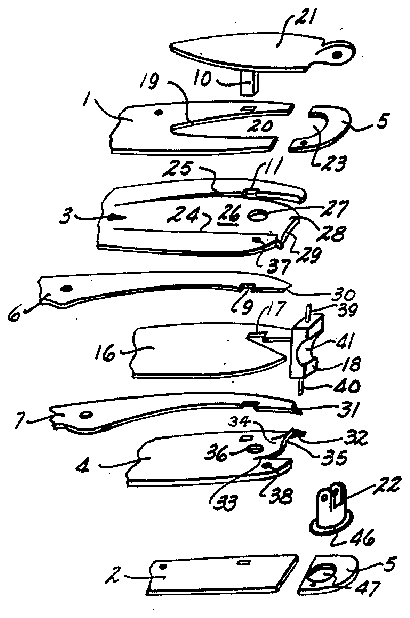 21
10
19
1
20
5
23
11
25
3
24
26
27
28
29
37
6
9
30
39
17
16
41
18
40
7
31
34
32
36
35
4
33
38
22
46
2
5
47